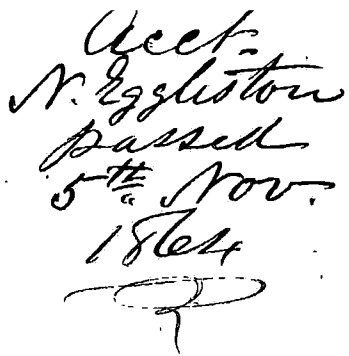 Acct.
N. Eggleston
passed
5th Nov.
1864